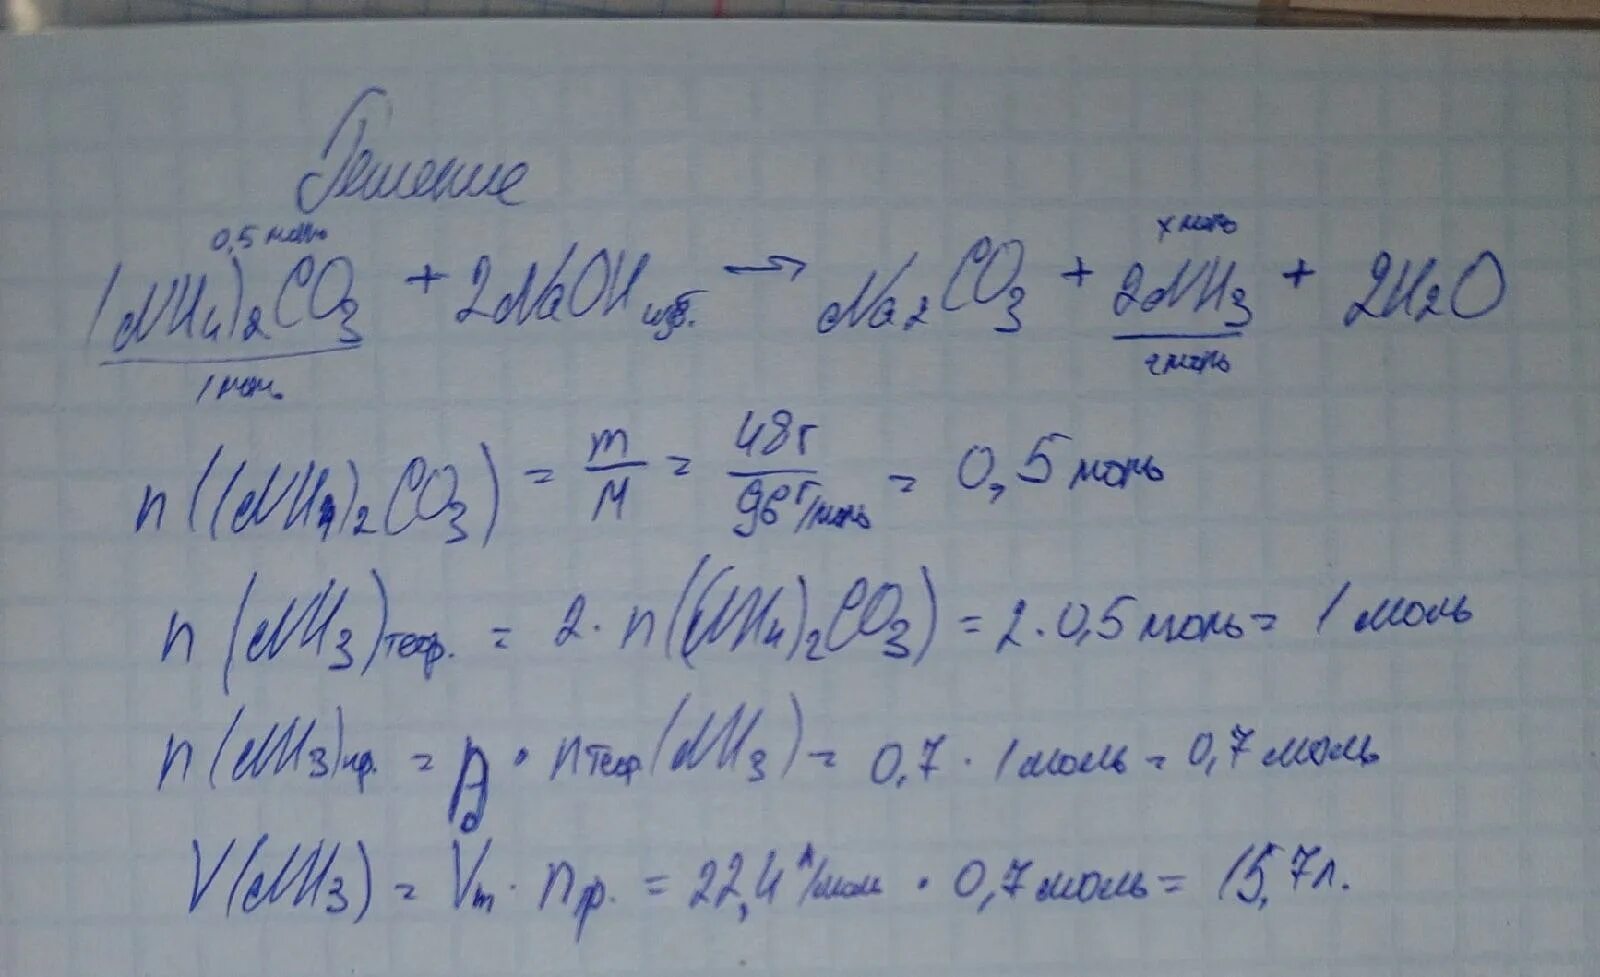 Решение
0,5 моль х моль
(NH4)2CO3 + 2NaOH изб. → Na2CO3 + 2NH3 + 2H2O
1 мол. 2 моль
n((NH4)2CO3) = m/M = 48г/96г/моль = 0,5 моль
n(NH3)теор. = 2·n((NH4)2CO3) = 2·0,5 моль = 1 моль
n(NH3)пр. = · nтеор(NH3) = 0,7 · 1 моль = 0,7 моль
V(NH3) = Vm · nпр. = 22,4 л/моль · 0,7 моль = 15,7л.